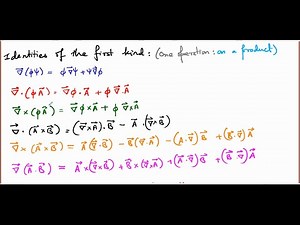 Identities of the first kind: (One operation: on a product)
∇⃗(φψ) = φ∇⃗ψ + ψ∇⃗φ
∇⃗·(φA⃗) = ∇⃗φ·A⃗ + φ∇⃗·A⃗
∇⃗×(φA⃗) = ∇⃗φ×A⃗ + φ∇⃗×A⃗
∇⃗·(A⃗×B⃗) = (∇⃗×A⃗)·B⃗ − A⃗·(∇⃗×B⃗)
∇⃗×(A⃗×B⃗) = A⃗(∇⃗·B⃗) − B⃗(∇⃗·A⃗) − (A⃗·∇⃗)B⃗ + (B⃗·∇⃗)A⃗
∇⃗(A⃗·B⃗) = A⃗×(∇⃗×B⃗) + B⃗×(∇⃗×A⃗) + (A⃗·∇⃗)B⃗ + (B⃗·∇⃗)A⃗